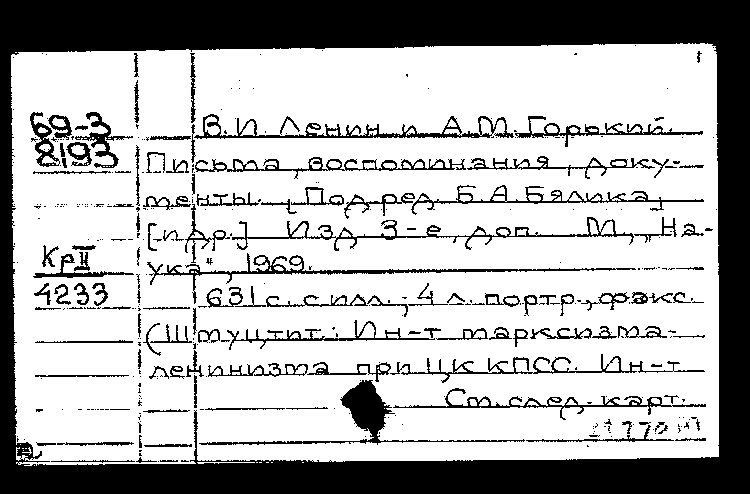 69-3
8193
В.И. Ленин и А.М. Горький.
Письма, воспоминания, доку-
менты. [Под ред. Б.А. Бялика,
[и др.] Изд. 3-е, доп. М., „На-
ука", 1969.
Кр II
4233
631 с. с илл.; 4 л. портр., факс.
(Штуцтит.: Ин-т марксизма-
ленинизма при ЦК КПСС. Ин-т
См. след. карт.